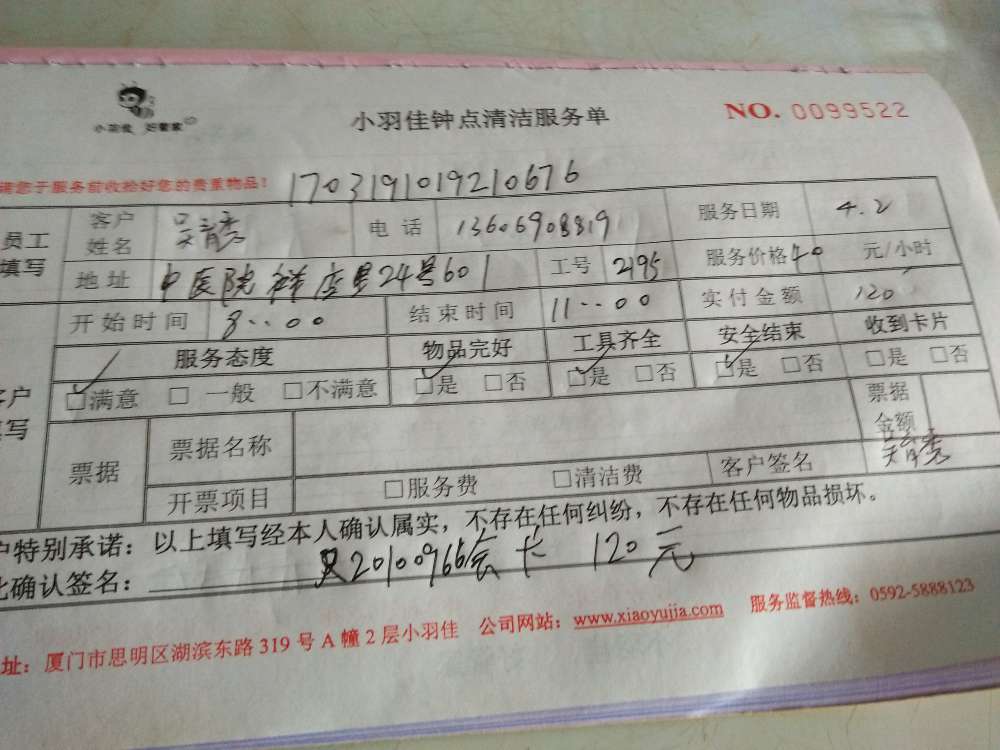 小羽佳 好管家
小羽佳钟点清洁服务单
NO. 0099522
请您于服务前收拾好您的贵重物品!
1703191019210676
员工填写
客户姓名 吴青秀 电话 13606908819 服务日期 4.2
地址 中医院祥店里24号601 工号 2195 服务价格 40 元/小时
开始时间 8:00 结束时间 11:00 实付金额 120
客户填写
服务态度 物品完好 工具齐全 安全结束 收到卡片
☑满意 □一般 □不满意 ☑是 □否 ☑是 □否 ☑是 □否 □是 □否
票据 票据名称 票据金额
开票项目 □服务费 □清洁费 客户签名 吴青秀
户特别承诺:以上填写经本人确认属实,不存在任何纠纷,不存在任何物品损坏。
此确认签名: 20100966会卡 120元
址:厦门市思明区湖滨东路 319 号 A 幢 2 层小羽佳 公司网站:www.xiaoyujia.com 服务监督热线:0592-5888123